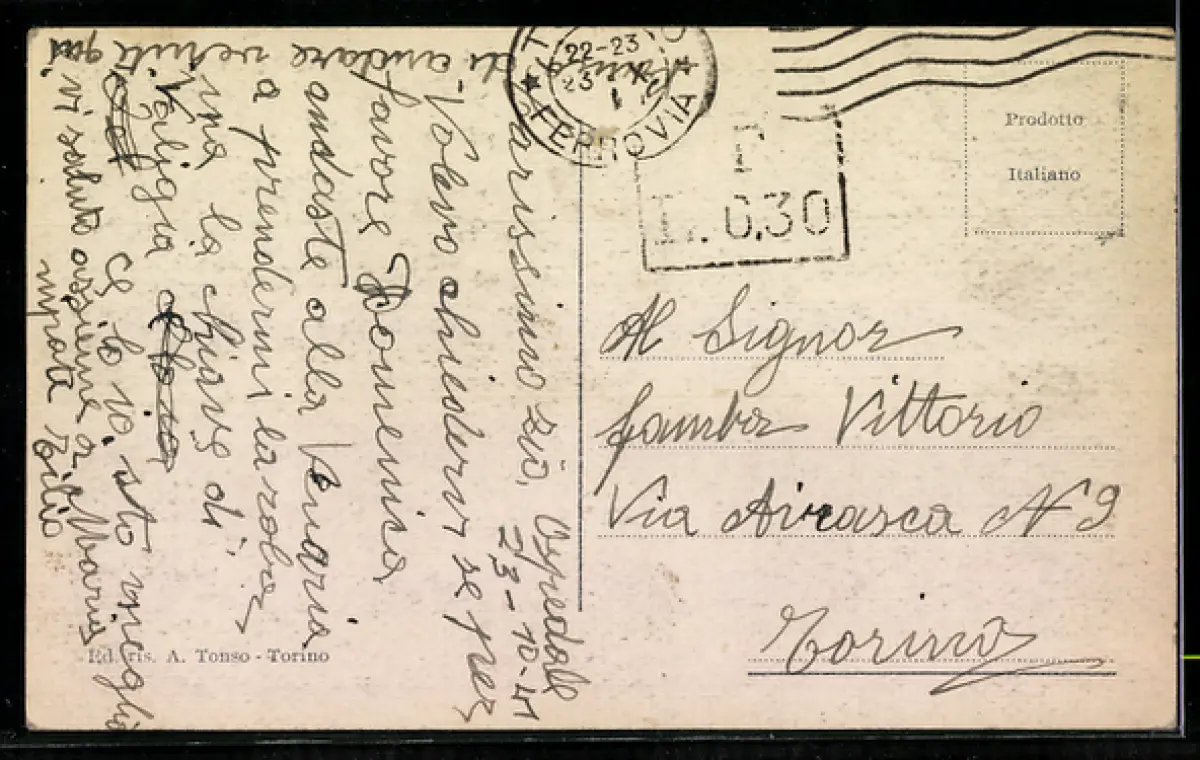 Ospedale
23-10-41
Carissimo zio,
Volevo chiedervi se per
favore Domenica
andaste alla Venaria
a prendermi la roba
ma la chiave di
Valigia
Ce lo io. sto meglio
vi saluto assieme a Maria
nipote Zilio
di andare
venite qui.
22-23
23 X
FERROVIA
L. 0,30
Prodotto
Italiano
Al Signor
Vittorio
Via Airasca N 9
Torino
Ed. ris. A. Tonso - Torino